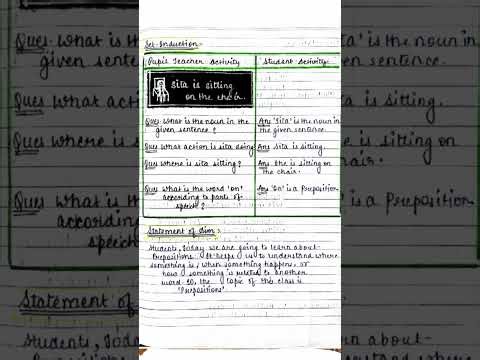 Set-Induction -
Pupil Teacher Activity
Student Activity
Sita is sitting
on the chair.
Ques What is the noun in the
given sentence?
Ans 'Sita' is the noun in
the given sentence.
Ques What action is sita doing?
Ans Sita is sitting.
Ques Where is sita sitting?
Ans She is sitting on
the chair.
Ques What is the word 'on'
according to parts of
speech?
Ans 'On' is a preposition.
Statement of Aim :
Students, today we are going to learn about
Prepositions. It helps us to understand where
something is, when something happens, or
how something is related to another
word. So, the topic of the class is
'Prepositions'.